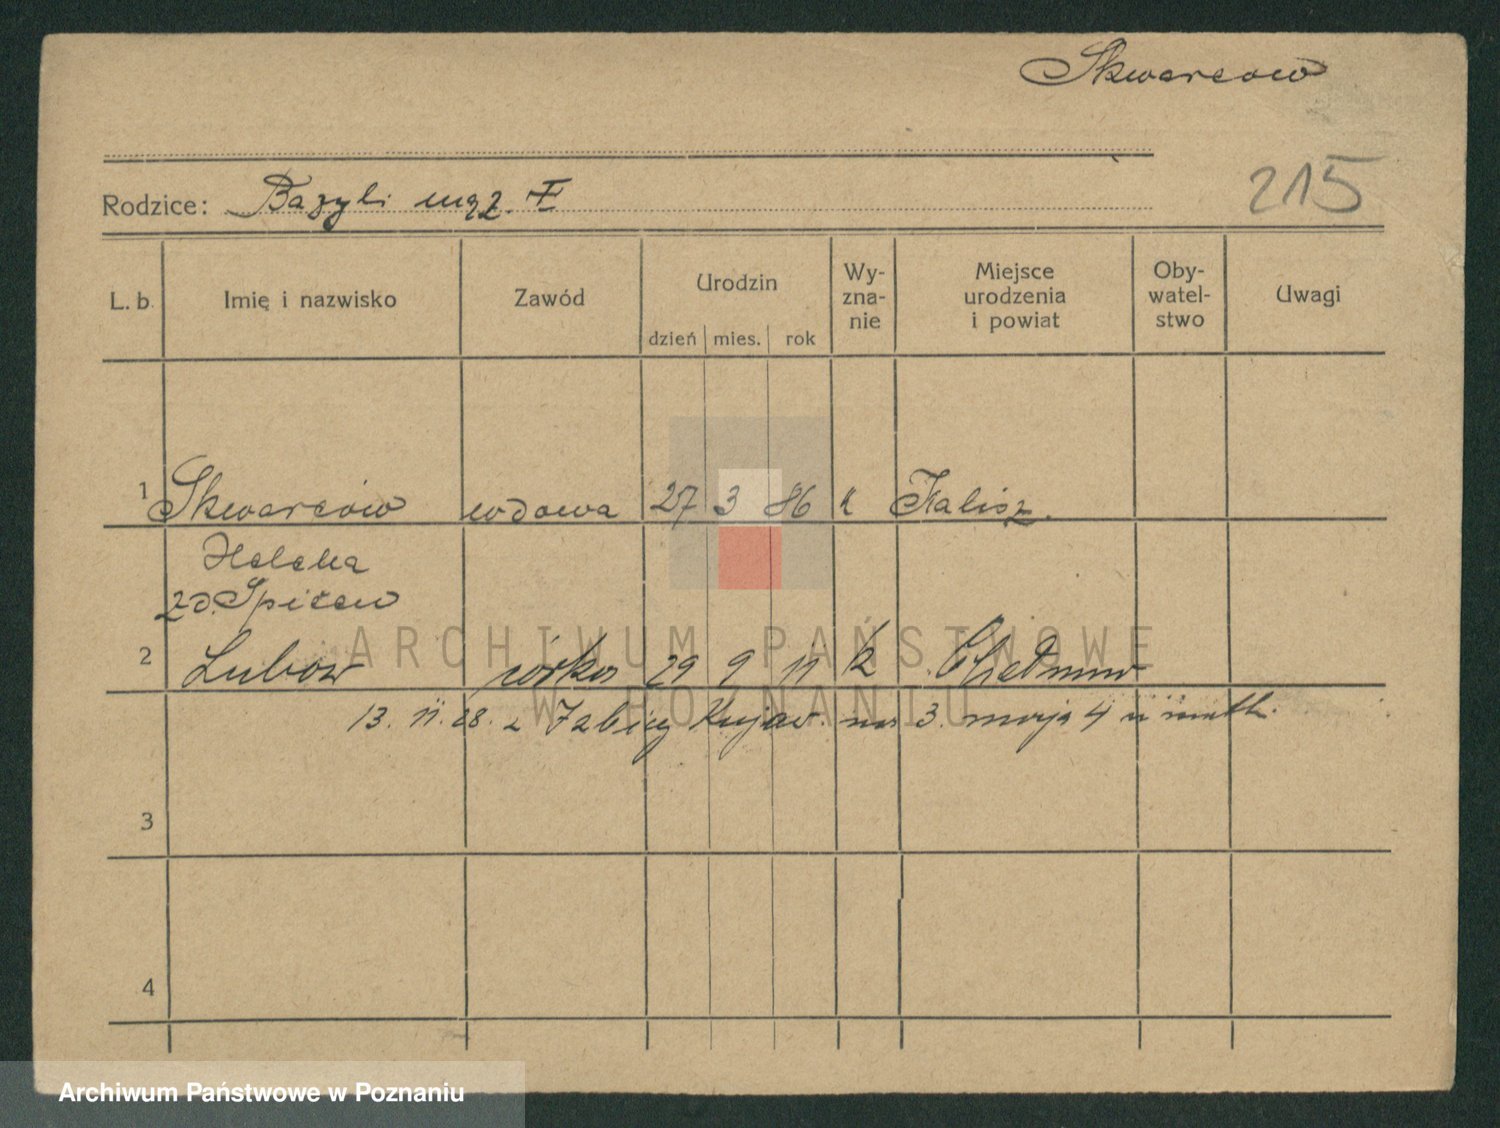 Skwarcow
215
Rodzice: Bazyli mąż. I
L. b. Imię i nazwisko Zawód Urodzin dzień mies. rok Wy-zna-nie Miejsce urodzenia i powiat Oby-watel-stwo Uwagi
1 Skwarcow wdowa 27 3 86 k Kalisz.
Helena
zd. Spitew
2 Lubow córka 29 9 11 k Chełmno
13. 11. 28. z Izbicy Kujaw. na 3. maja 4 u matk.
3
4
ARCHIWUM PAŃSTWOWE
W POZNANIU
Archiwum Państwowe w Poznaniu